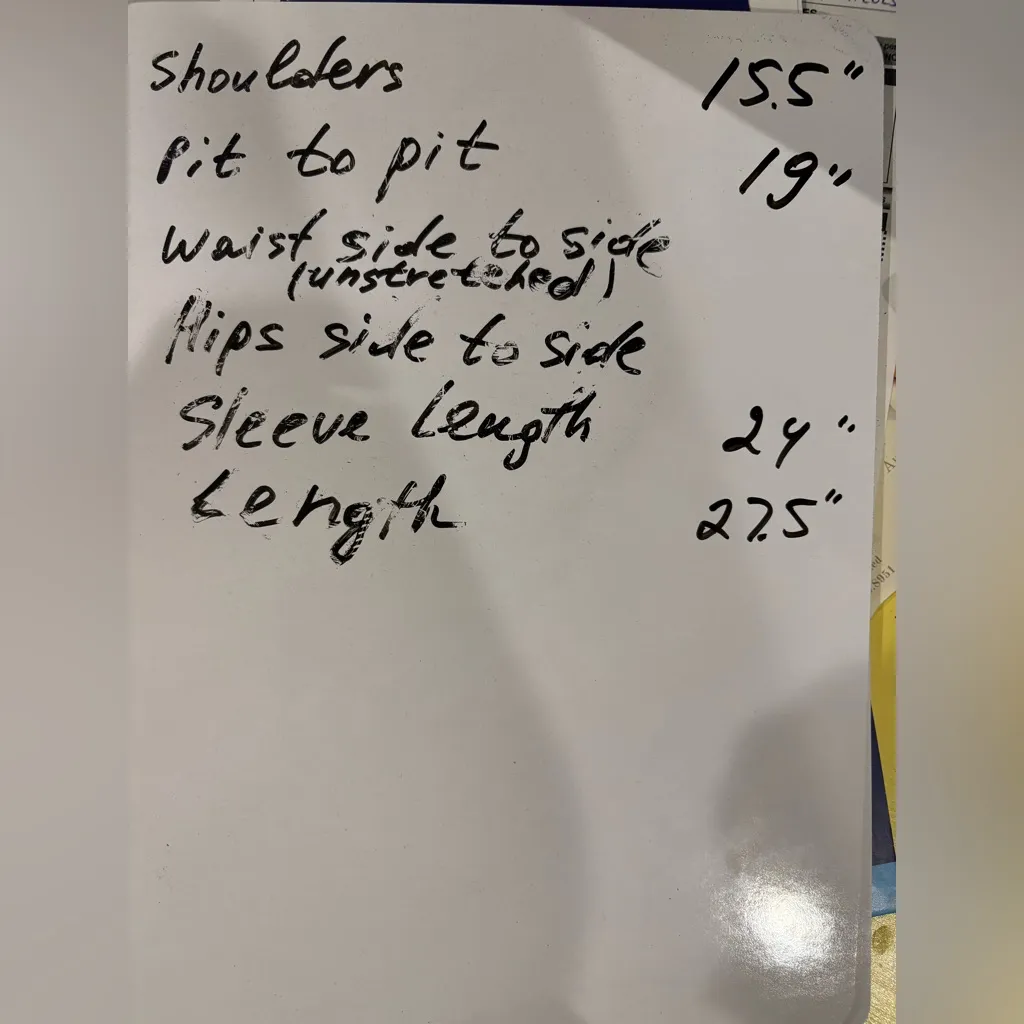 Shoulders 15.5"
Pit to pit 19"
Waist side to side
(unstretched)
Hips side to side
Sleeve Length 24"
Length 27.5"